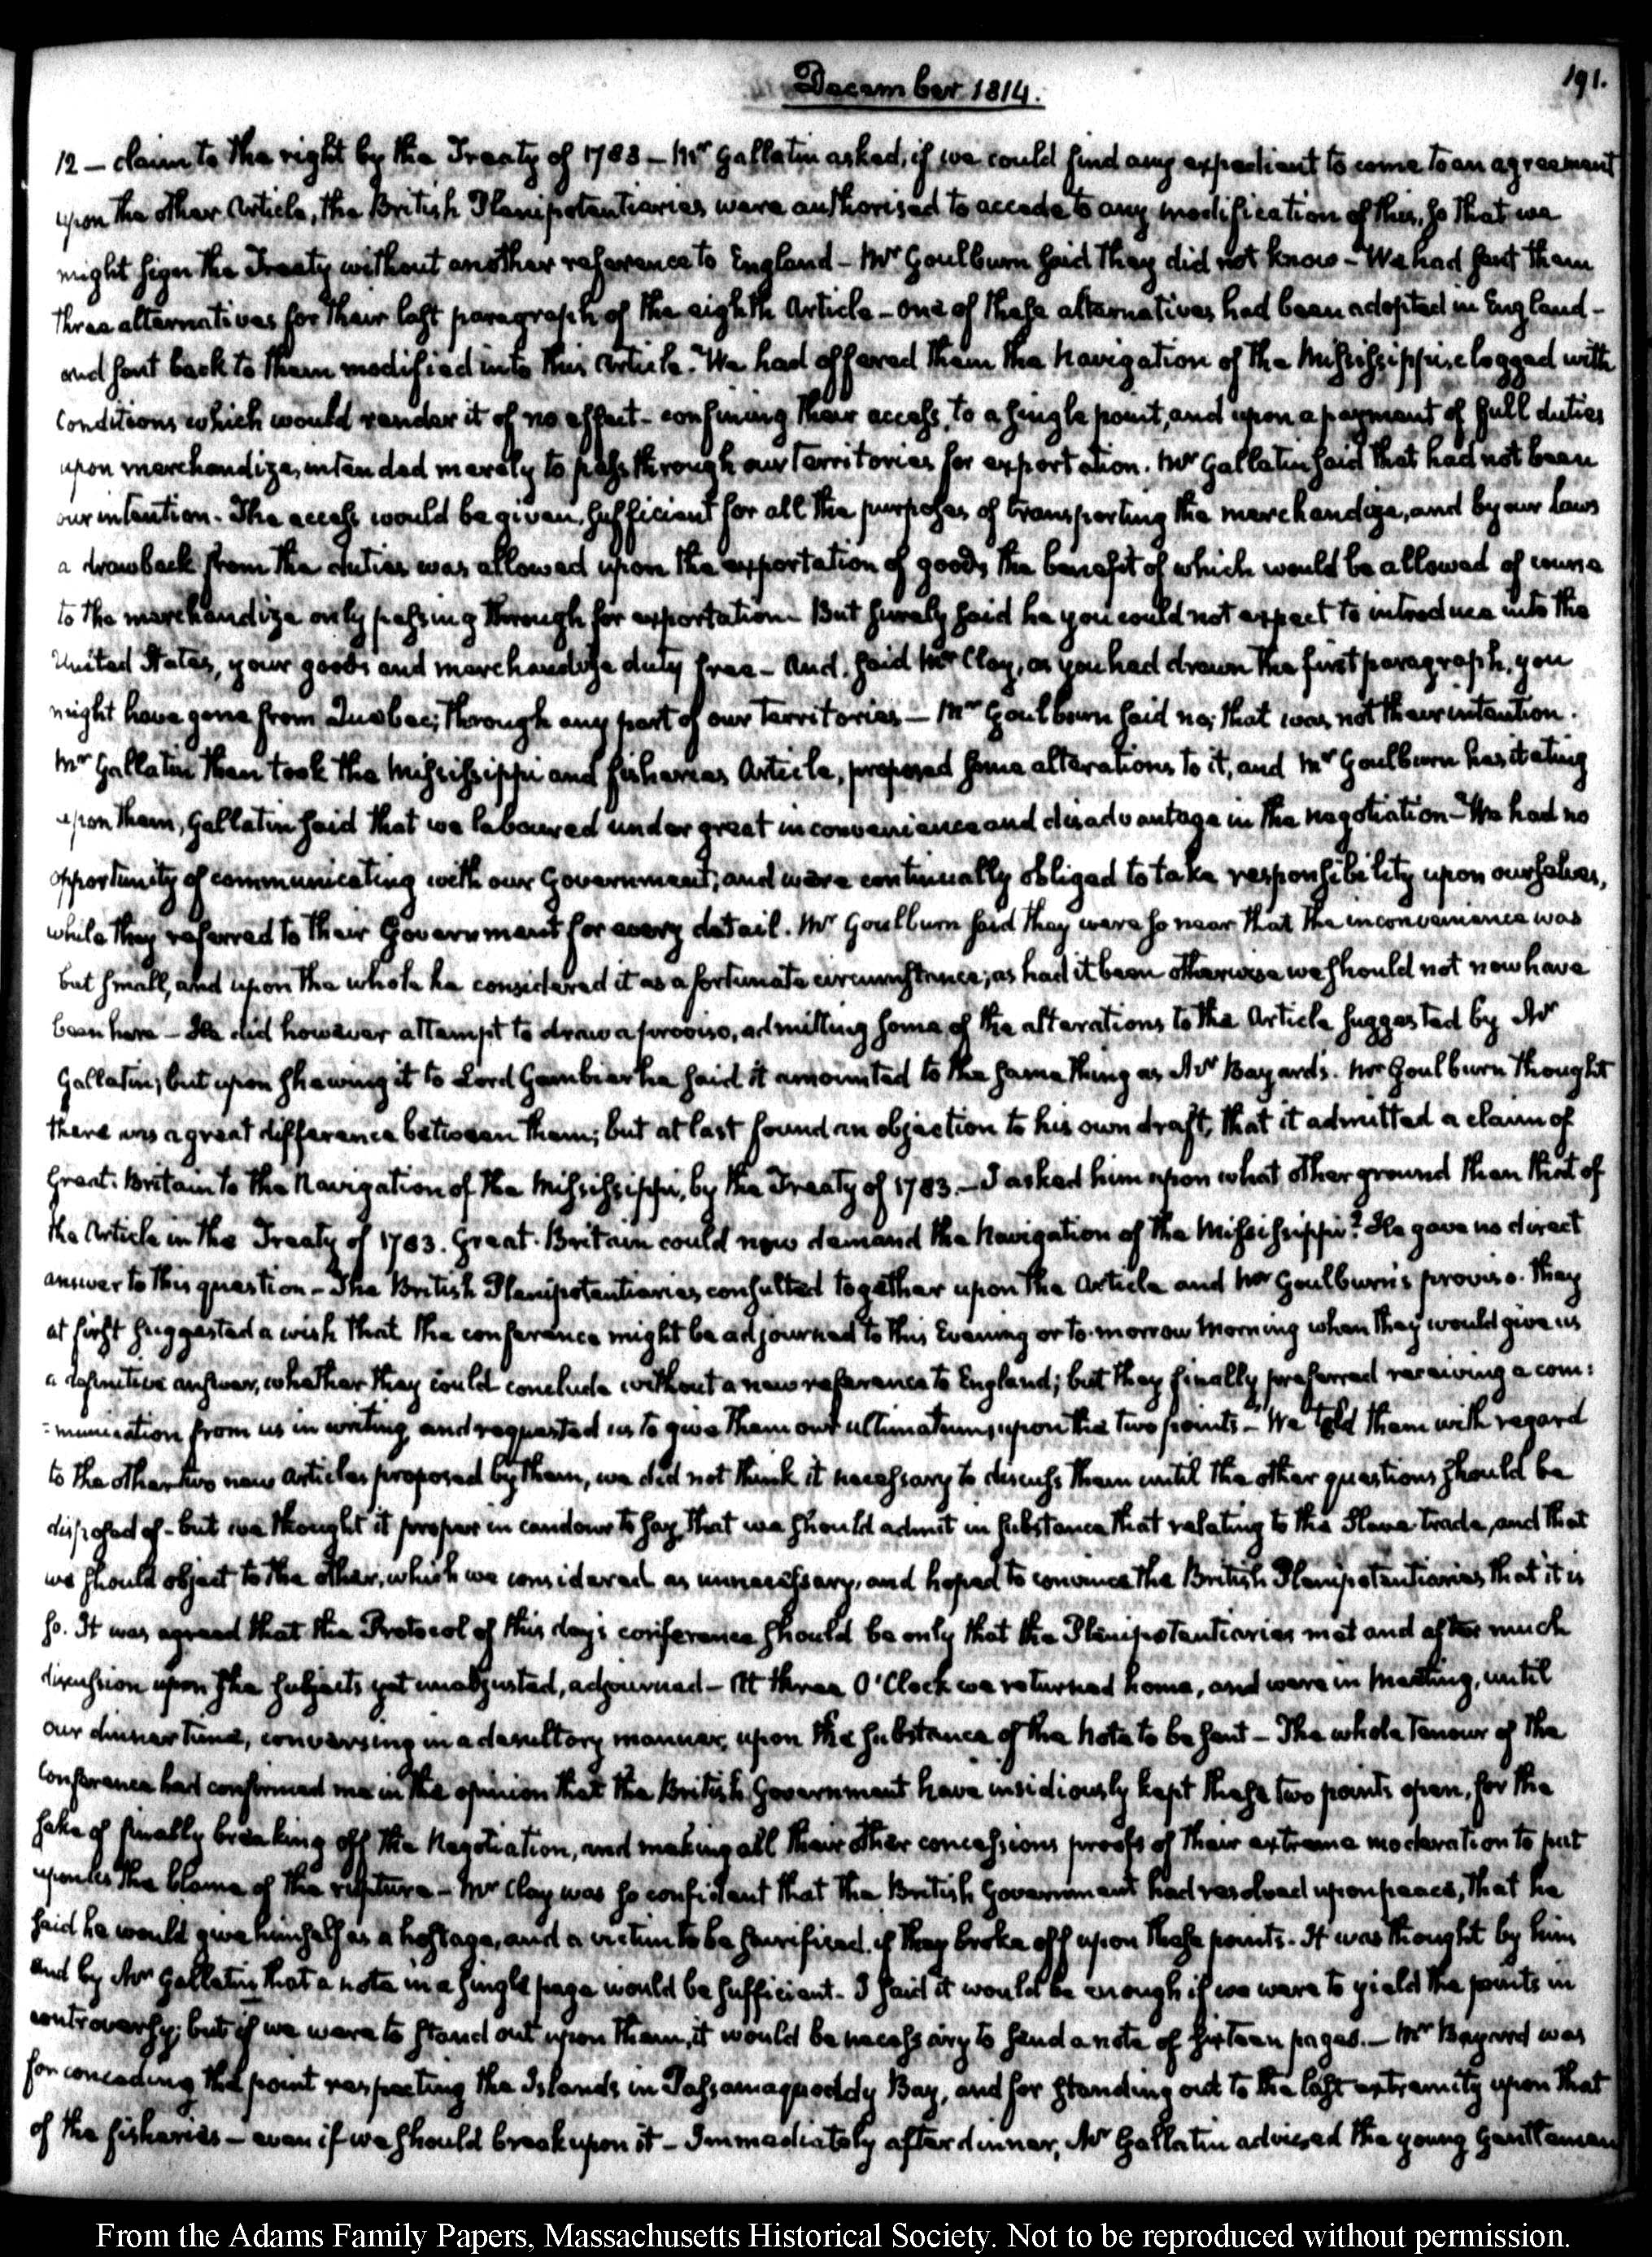 December 1814.
191.
12 – claim to the right by the Treaty of 1783 – Mr Gallatin asked, if we could find any expedient to come to an agreement
upon the other Article, the British Plenipotentiaries were authorised to accede to any modification of this, so that we
might sign the Treaty without another reference to England – Mr Goulburn said they did not know – We had sent them
three alternatives for their last paragraph of the eighth Article – one of these alternatives had been adopted in England –
and sent back to them modified into this Article. We had offered them the Navigation of the Mississippi, clogged with
Conditions which would render it of no effect – confining their access, to a single point, and upon a payment of full duties
upon merchandize, intended merely to pass through our Territories for exportation. Mr Gallatin said that had not been
our intention. The access would be given, sufficient for all the purposes of transporting the merchandize, and by our Laws
a drawback from the duties was allowed upon the exportation of goods the benefit of which would be allowed of course
to the merchandize only passing through for exportation – But surely said he you could not expect to introduce into the
United States, your goods and merchandize duty free – And, said Mr Clay, as you had drawn the first paragraph, you
might have gone from Quebec, through any part of our Territories – Mr Goulburn said no, that was not their intention.
Mr Gallatin then took the Mississippi and fisheries Article, proposed some alterations to it, and Mr Goulburn hesitating
upon them, Gallatin said that we laboured under great inconvenience and disadvantage in the negotiation – We had no
opportunity of communicating with our Government, and were continually obliged to take responsibility upon ourselves,
while they referred to their Government for every detail. Mr Goulburn said they were so near that the inconvenience was
but small, and upon the whole he considered it as a fortunate circumstance; as had it been otherwise we should not now have
been here – He did however attempt to draw a proviso, admitting some of the alterations to the Article suggested by Mr
Gallatin; but upon shewing it to Lord Gambier he said it amounted to the same thing as Mr Bayard's. Mr Goulburn thought
there was a great difference between them; but at last found an objection to his own draft, that it admitted a claim of
Great-Britain to the Navigation of the Mississippi, by the Treaty of 1783. – I asked him upon what other ground than that of
the Article in the Treaty of 1783. Great-Britain could now demand the Navigation of the Mississippi? He gave no direct
answer to this question – The British Plenipotentiaries consulted together upon the Article and Mr Goulburn's proviso. They
at first suggested a wish that the conference might be adjourned to this Evening or to-morrow Morning when they would give us
a definitive answer, whether they could conclude without a new reference to England; but they finally preferred receiving a com:
:munication from us in writing, and requested us to give them our ultimatum, upon the two points – We told them with regard
to the other two new Articles proposed by them, we did not think it necessary to discuss them until the other questions should be
disposed of – but we thought it proper in candour to say that we should admit in substance that relating to the Slave trade, and that
we should object to the other, which we considered as unnecessary, and hoped to convince the British Plenipotentiaries that it is
so. It was agreed that the Protocol of this day's conference should be only that the Plenipotentiaries met and after much
discussion upon the subjects yet unadjusted, adjourned – At three O'Clock we returned home, and were in Meeting, until
our dinner time, conversing in a desultory manner, upon the substance of the Note to be sent – The whole tenour of the
Conference had confirmed me in the opinion that the British Government have insidiously kept these two points open, for the
sake of finally breaking off the Negotiation, and making all their other concessions proofs of their extreme moderation to put
upon us the blame of the rupture – Mr Clay was so confident that the British Government had resolved upon peace, that he
said he would give himself as a hostage, and a victim to be sacrificed, if they broke off upon these points. It was thought by him
and by Mr Gallatin that a note in a single page would be sufficient. I said it would be enough if we were to yield the points in
controversy; but if we were to stand out upon them, it would be necessary to send a note of sixteen pages. – Mr Bayard was
for conceding the point respecting the Islands in Passamaquoddy Bay, and for standing out to the last extremity upon that
of the fisheries – even if we should break upon it – Immediately after dinner, Mr Gallatin advised the young Gentlemen
From the Adams Family Papers, Massachusetts Historical Society. Not to be reproduced without permission.